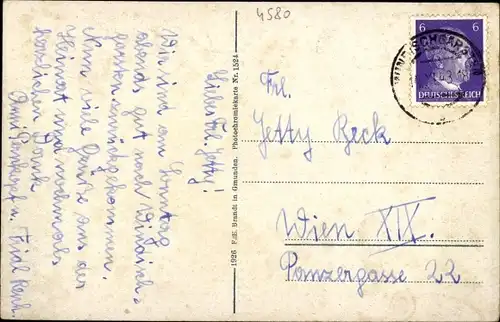 4580
Liebe Frl. Jetty!
Wir sind am Sonntag
abends gut nach Windisch-
garsten zurückgekommen.
Nun viele Grüße aus der
Heimat und nochmals
herzlichen Dank
Frl.
Jetty Beck
Wien XIX.
Panzergasse 22
1926 F. E. Brandt in Gmunden. Photochromiekarte Nr. 1524
6 6
DEUTSCHES REICH
WINDISCHGARSTEN